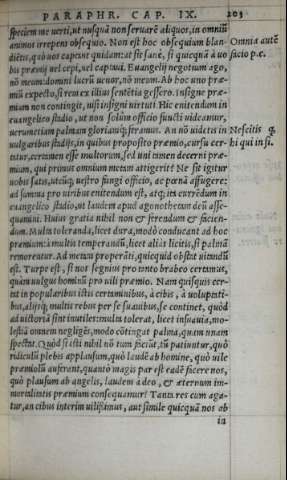 PARAPHR. CAP. IX. 203
speciem me uerti, ut nusquā non seruarē aliquot, in omniū
animos irrepens obsequio. Non est hoc obsequium blan-
dientis, quò uos capiens quidam: ut sit sanè, si quicquā à uo
bis præmij uel cepi, uel captaui. Euangelij negotium ago,
nō meum: domini lucrū uenor, nō meum. Ab hoc uno præ-
miū expecto, si rem ex illius sentētia gessero. Insigne præ-
mium non contingit, nisi insigni uirtuti. Hic enitendum in
euangelico stadio, ut non solùm officio functi uideamur,
uerumetiam palmam gloriamq́; feramus. An nō uidetis in
uulgaribus stadijs, in quibus proposito præmio, cursu cer-
tatur, certamen esse multorum, sed uni tamen decerni præ-
mium, qui primus omnium metam attigerit? Ne sit igitur
uobis satis, utcūq; uestro fungi officio, ac pœnā affugere:
ad summa pro uiribus enitendum est, atq; ita currēdum in
euangelico stadio, ut laudem apud agonothetam deū asse-
quamini. Huius gratia nihil non & ferendum & facien-
dum. Multa toleranda, licet dura, modò conducant ad hoc
præmium: à multis temperandū, licet aliàs licitis, si palmā
remorentur. Ad metam properāti, quicquid obstat uitandū
est. Turpe est, si nos segnius pro tanto brabeo certamus,
quàm uulgus hominū pro uili præmio. Nam quisquis cer-
tat in popularibus istis certaminibus, à cibis, à uoluptati-
bus, alijsq́; multis rebus per se suauibus, se continet, quòd
ad uictoriā sint inutiles: multa tolerat, licet insuauia, mo-
lestiā omnem negligēs, modo cōtingat palma, quam unam
spectat. Quòd si isti nihil nō tum faciūt, tū patiuntur, quò
ridiculū plebis applausum, quò laudē ab homine, quò uile
præmiolū auferant, quantò magis par est eadē facere nos,
quò plausum ab angelis, laudem à deo, & æternum im-
mortalitatis præmium consequamur? Tanta res cum aga-
tur, an cibus interim uilissimus, aut simile quicquā nos ab
in
Omnia autē
facio p.c.
Nescitis q.
hi qui in si.